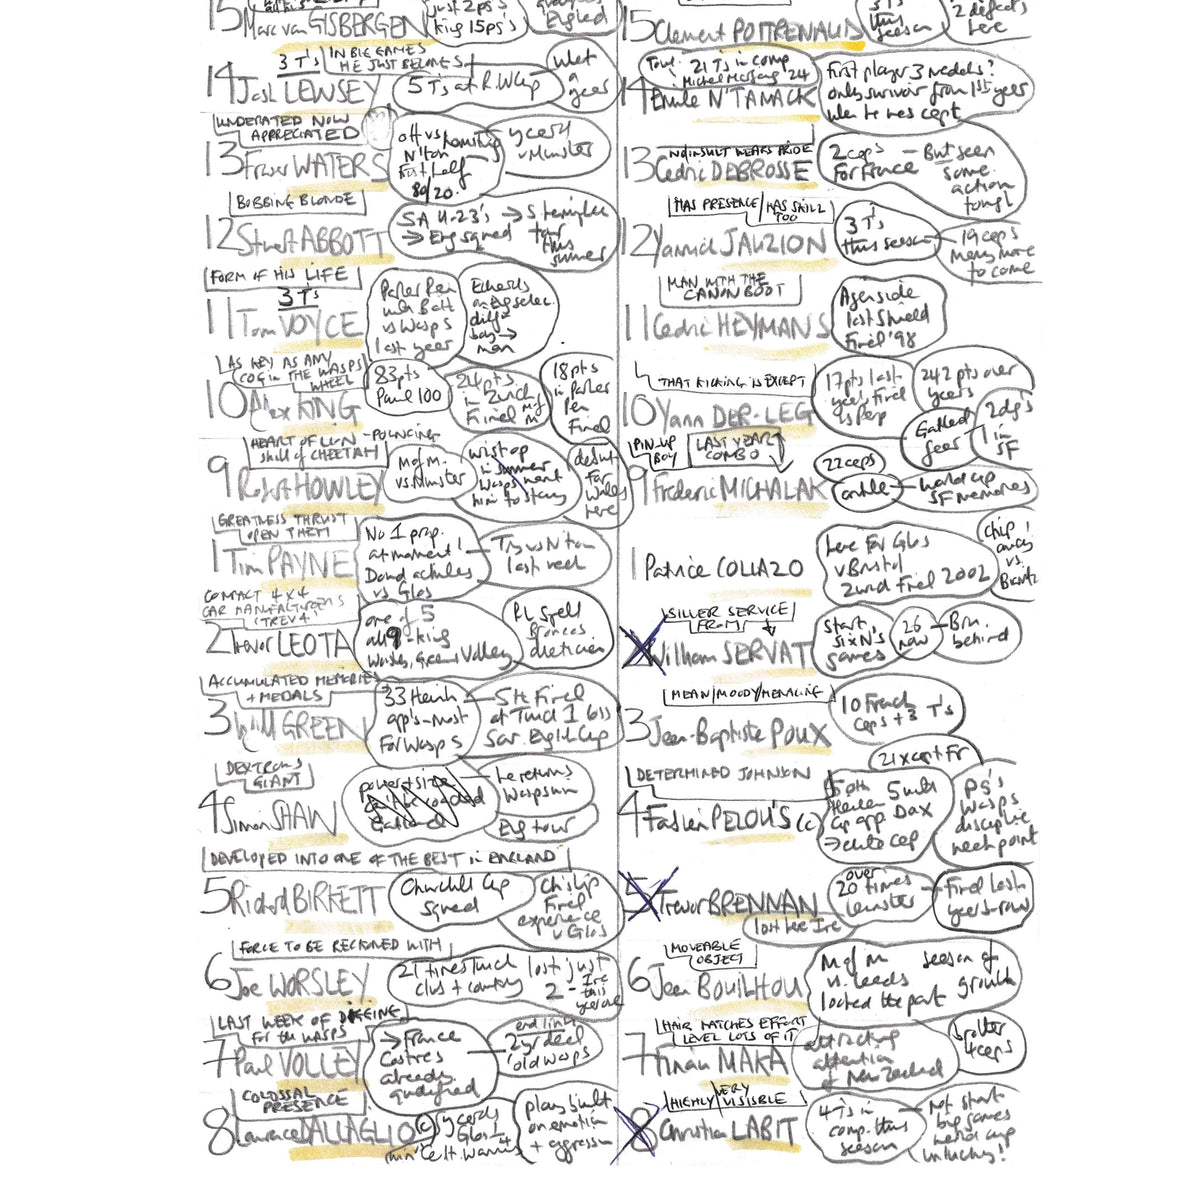 15 Marc van GISBERGEN
Just 2 ps's
king 15ps's
England
14 Josh LEWSEY
3 T's
IN BIG GAMES
HE JUST BELONGS
5 T's at R.W.Cup
what
a
year
UNDERATED NOW
APPRECIATED
13 Fraser WATERS
off vs
N'ton
first half
80/20.
v Munster
BOBBING BLONDE
12 Stuart ABBOTT
SA U-23's →
→ Eng squad
tour
this
summer
FORM OF HIS LIFE
3 T's
11 Tom VOYCE
Parker Pen
with Bath
vs Wasps
last year
Edwards
boy →
man
AS KEY AS ANY
COG in THE WASPS
WHEEL
10 Alex KING
83pts
Paul 100
24 pts
in Zurich
Final
M of
M
18pts
in Parker
Pen
Final
HEART OF LION - POUNCING
skill of CHEETAH
9 Robert HOWLEY
M of M.
vs. Munster
wrist op
in summer
Wasps want
him to stay
debut
for
Wales
here
GREATNESS THRUST
UPON THEM
1 Tim PAYNE
No 1 prop.
at moment!
Dowd achilles
vs Glos
Try vs N'ton
last week
COMPACT 4x4
CAR MANUFACTURERS
TREV 4
2 Trevor LEOTA
one of 5
all 9-king
Worsley, Green, Volley
RL spell
Frances
dietician
ACCUMULATED MEMORIES
+ MEDALS
3 Will GREEN
33 Hein
app's - most
for Wasps
5th Final
at Twick 1 loss
Sar. English Cup
DEXTROUS
GIANT
4 Simon SHAW
he returns
Wasps win
Eng tour
DEVELOPED INTO ONE OF THE BEST in ENGLAND
5 Richard BIRKETT
Churchill Cup
Squad
Ch'ship
Final
experience
v Glos
FORCE TO BE RECKONED WITH
6 Joe WORSLEY
21 times Twick
club + country
lost just
2 - Ire
this
year one
LAST WEEK OF DIGGING
for the WASPS
7 Paul VOLLEY
→ France
Castres
already
qualified
end link
2 yr deal
'old wasps
COLOSSAL
PRESENCE
8 Lawrence DALLAGLIO (c)
5 years
Glos
Celt Warriors
plays built
on emotion
+ aggression
15 Clement POITRENAUD
3 T's
this
season
2 defeats
here
Toul: 21 T's in comp
Michel Marfaing '24
14 Emile N'TAMACK
First player 3 medals?
only survivor from 1st year
when he was capt
NO INSULT WEARS PRIDE
13 Cedric DEBROSSE
2 caps
for France
- But seen
some
action
tough
HAS PRESENCE / HAS SKILL
TOO
12 Yannick JAUZION
3 T's
this season
19 caps
many more
to come
MAN WITH THE
CANON BOOT
11 Cedric HEYMANS
Agen side
lost Shield
Final '98
THAT KICKING IS EXCEPT
10 Yann DELAIGUE
17pts last
year's Final
vs Perp
242 pts over
years
Gallard
year
2 dg's
1 in
SF
PIN-UP
BOY
LAST YEAR
COMBO
9 Frederic MICHALAK
22 caps
ankle
world cup
SF memories
1 Patrice COLLAZO
here for Glos
v Bristol
Zurich Final 2002
chip
away
vs.
Biarritz
SILVER SERVICE
FROM ↓
2 William SERVAT
Start
Six N's
games
26
now
Bru.
behind
MEAN/MOODY/MENACING
3 Jean-Baptiste POUX
10 French
caps + 3 T's
21 x capt Fr
DETERMINED JOHNSON
4 Fabien PELOUS (c)
50th
Heineken 5 with
Cup app. Dax
→ club cap
PS's
Wasps
discipline
weak point
5 Trevor BRENNAN
over
20 times
Leinster
Final last
year - row
lost here Ire
MOVEABLE
OBJECT
6 Jean BOUILHOU
M of M
vs. Leeds
looked the part
season of
growth
HAIR MATCHES EFFORT
LEVEL LOTS OF IT
7 Finau MAKA
attracting
attention
of New Zealand
after
4 caps
HIGHLY / VERY
VISIBLE
8 Christian LABIT
4 T's in
comp. this
season
Not start
big games
world cup
unlucky!